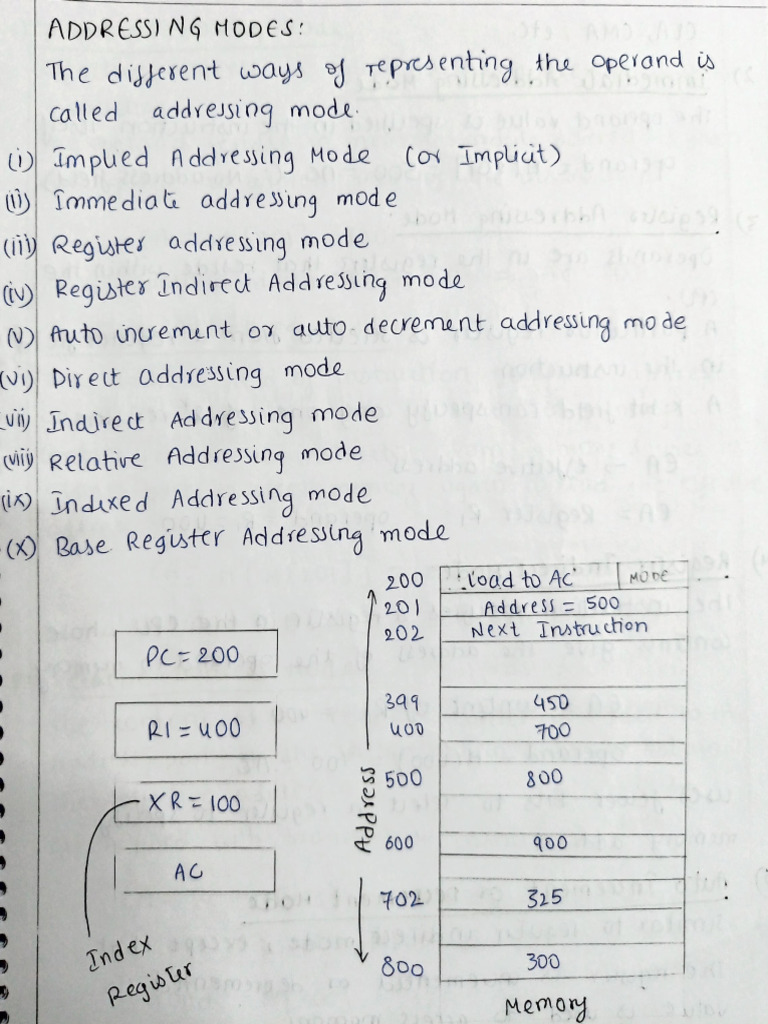 ADDRESSING MODES:
The different ways of representing the operand is
called addressing mode.
(i) Implied Addressing Mode (or Implicit)
(ii) Immediate addressing mode
(iii) Register addressing mode
(iv) Register Indirect Addressing mode
(v) Auto increment or auto decrement addressing mode
(vi) Direct addressing mode
(vii) Indirect Addressing mode
(viii) Relative Addressing mode
(ix) Indexed Addressing mode
(x) Base Register Addressing mode
200 Load to AC MODE
201 Address = 500
202 Next Instruction
PC = 200
399 450
R1 = 400
400 700
500 800
XR = 100
Address
600 900
AC
702 325
Index
Register
800 300
Memory